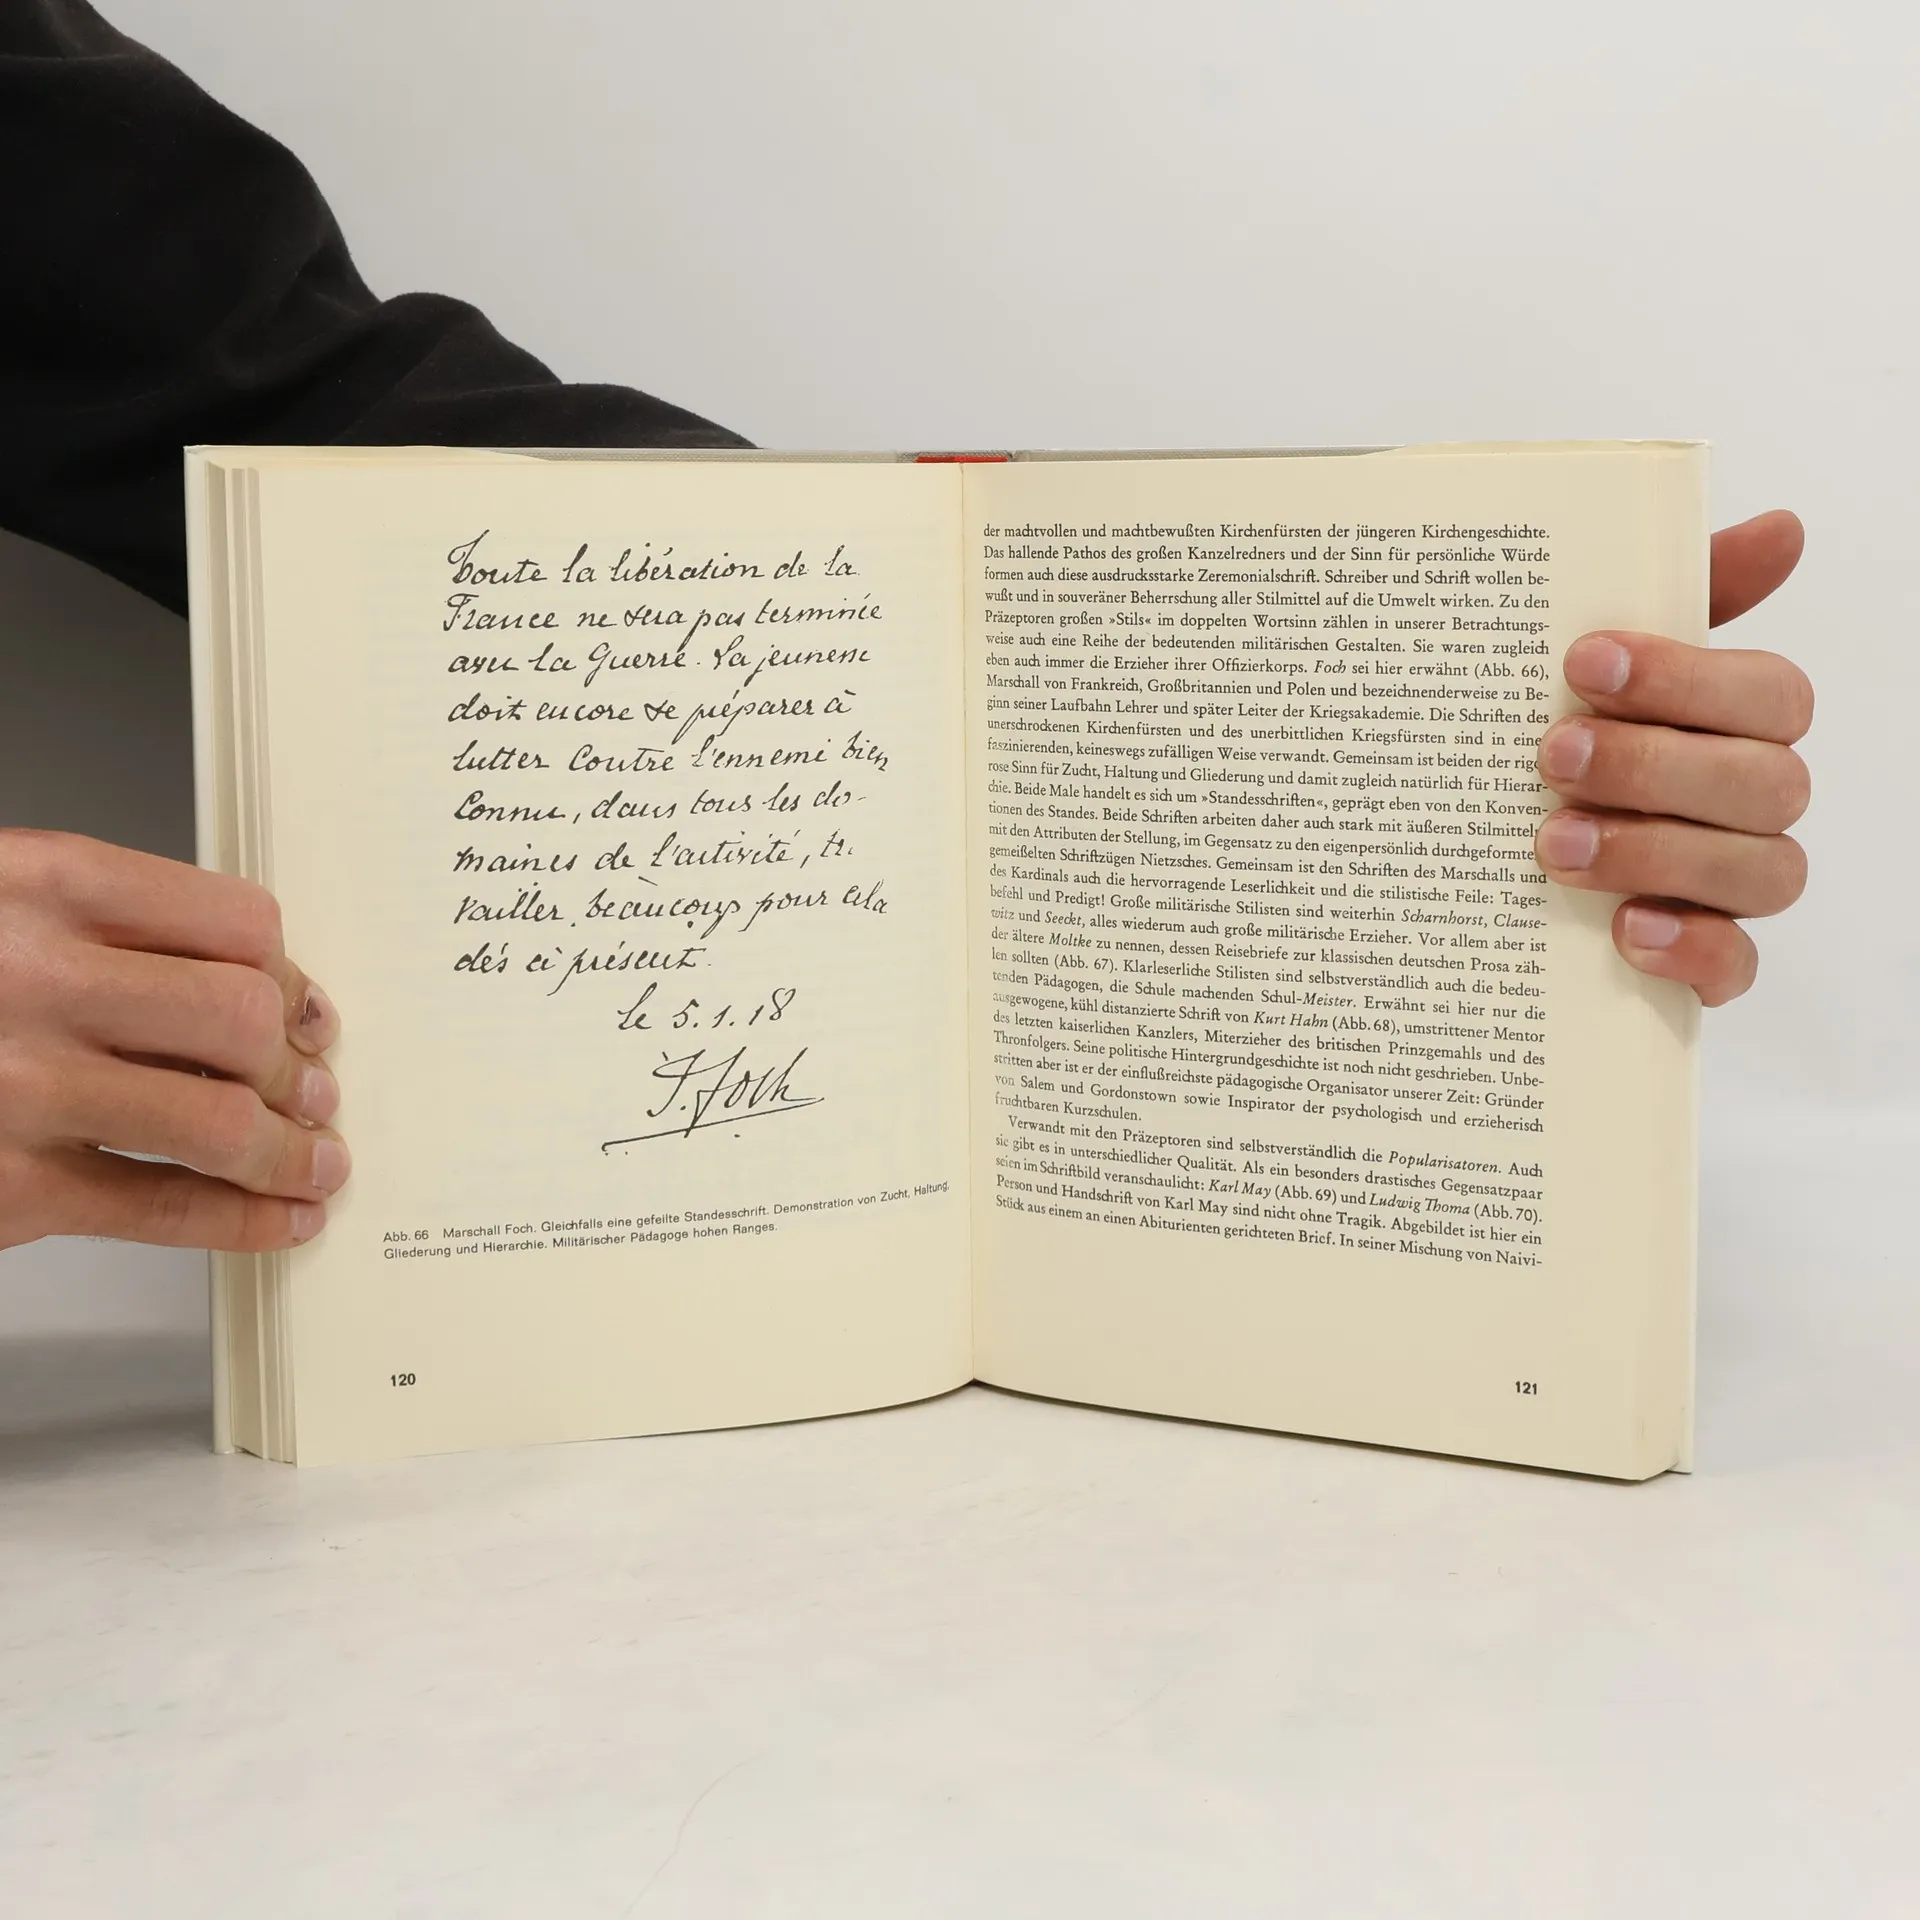 Toute la libération de la
France ne sera pas terminée
avec la Guerre. La jeunesse
doit encore se préparer à
lutter Contre l'ennemi bien
Connu, dans tous les do-
maines de l'activité, tra
vailler beaucoup pour cela
dés à présent.
Le 5.1.18
F. Foch
Abb. 66 Marschall Foch. Gleichfalls eine gefeilte Standesschrift. Demonstration von Zucht, Haltung,
Gliederung und Hierarchie. Militärischer Pädagoge hohen Ranges.
120
der machtvollen und machtbewußten Kirchenfürsten der jüngeren Kirchengeschichte.
Das hallende Pathos des großen Kanzelredners und der Sinn für persönliche Würde
formen auch diese ausdrucksstarke Zeremonialschrift. Schreiber und Schrift wollen be-
wußt und in souveräner Beherrschung aller Stilmittel auf die Umwelt wirken. Zu den
Präzeptoren großen »Stils« im doppelten Wortsinn zählen in unserer Betrachtungs-
weise auch eine Reihe der bedeutenden militärischen Gestalten. Sie waren zugleich
eben auch immer die Erzieher ihrer Offizierkorps. Foch sei hier erwähnt (Abb. 66),
Marschall von Frankreich, Großbritannien und Polen und bezeichnenderweise zu Be-
ginn seiner Laufbahn Lehrer und später Leiter der Kriegsakademie. Die Schriften des
unerschrockenen Kirchenfürsten und des unerbittlichen Kriegsfürsten sind in eine
faszinierenden, keineswegs zufälligen Weise verwandt. Gemeinsam ist beiden der rigo
rose Sinn für Zucht, Haltung und Gliederung und damit zugleich natürlich für Hierar-
chie. Beide Male handelt es sich um »Standesschriften«, geprägt eben von den Konven-
tionen des Standes. Beide Schriften arbeiten daher auch stark mit äußeren Stilmitteln
mit den Attributen der Stellung, im Gegensatz zu den eigenpersönlich durchgeformte
gemeißelten Schriftzügen Nietzsches. Gemeinsam ist den Schriften des Marschalls und
des Kardinals auch die hervorragende Leserlichkeit und die stilistische Feile: Tages-
befehl und Predigt! Große militärische Stilisten sind weiterhin Scharnhorst, Clause-
witz und Seeckt, alles wiederum auch große militärische Erzieher. Vor allem aber ist
der ältere Moltke zu nennen, dessen Reisebriefe zur klassischen deutschen Prosa zäh-
len sollten (Abb. 67). Klarleserliche Stilisten sind selbstverständlich auch die bedeu-
tenden Pädagogen, die Schule machenden Schul-Meister. Erwähnt sei hier nur die
ausgewogene, kühl distanzierte Schrift von Kurt Hahn (Abb. 68), umstrittener Mentor
des letzten kaiserlichen Kanzlers, Miterzieher des britischen Prinzgemahls und des
Thronfolgers. Seine politische Hintergrundgeschichte ist noch nicht geschrieben. Unbe-
stritten aber ist er der einflußreichste pädagogische Organisator unserer Zeit: Gründer
von Salem und Gordonstown sowie Inspirator der psychologisch und erzieherisch
fruchtbaren Kurzschulen.
Verwandt mit den Präzeptoren sind selbstverständlich die Popularisatoren. Auch
sie gibt es in unterschiedlicher Qualität. Als ein besonders drastisches Gegensatzpaar
seien im Schriftbild veranschaulicht: Karl May (Abb. 69) und Ludwig Thoma (Abb. 70).
Person und Handschrift von Karl May sind nicht ohne Tragik. Abgebildet ist hier ein
Stück aus einem an einen Abiturienten gerichteten Brief. In seiner Mischung von Naivi-
121